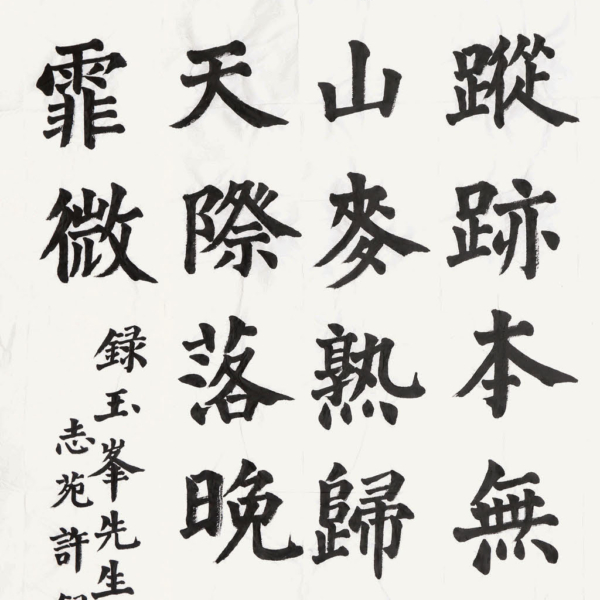 蹤跡本無
山麥熟歸
天際落晩
霏微
録玉峯先生
志苑許